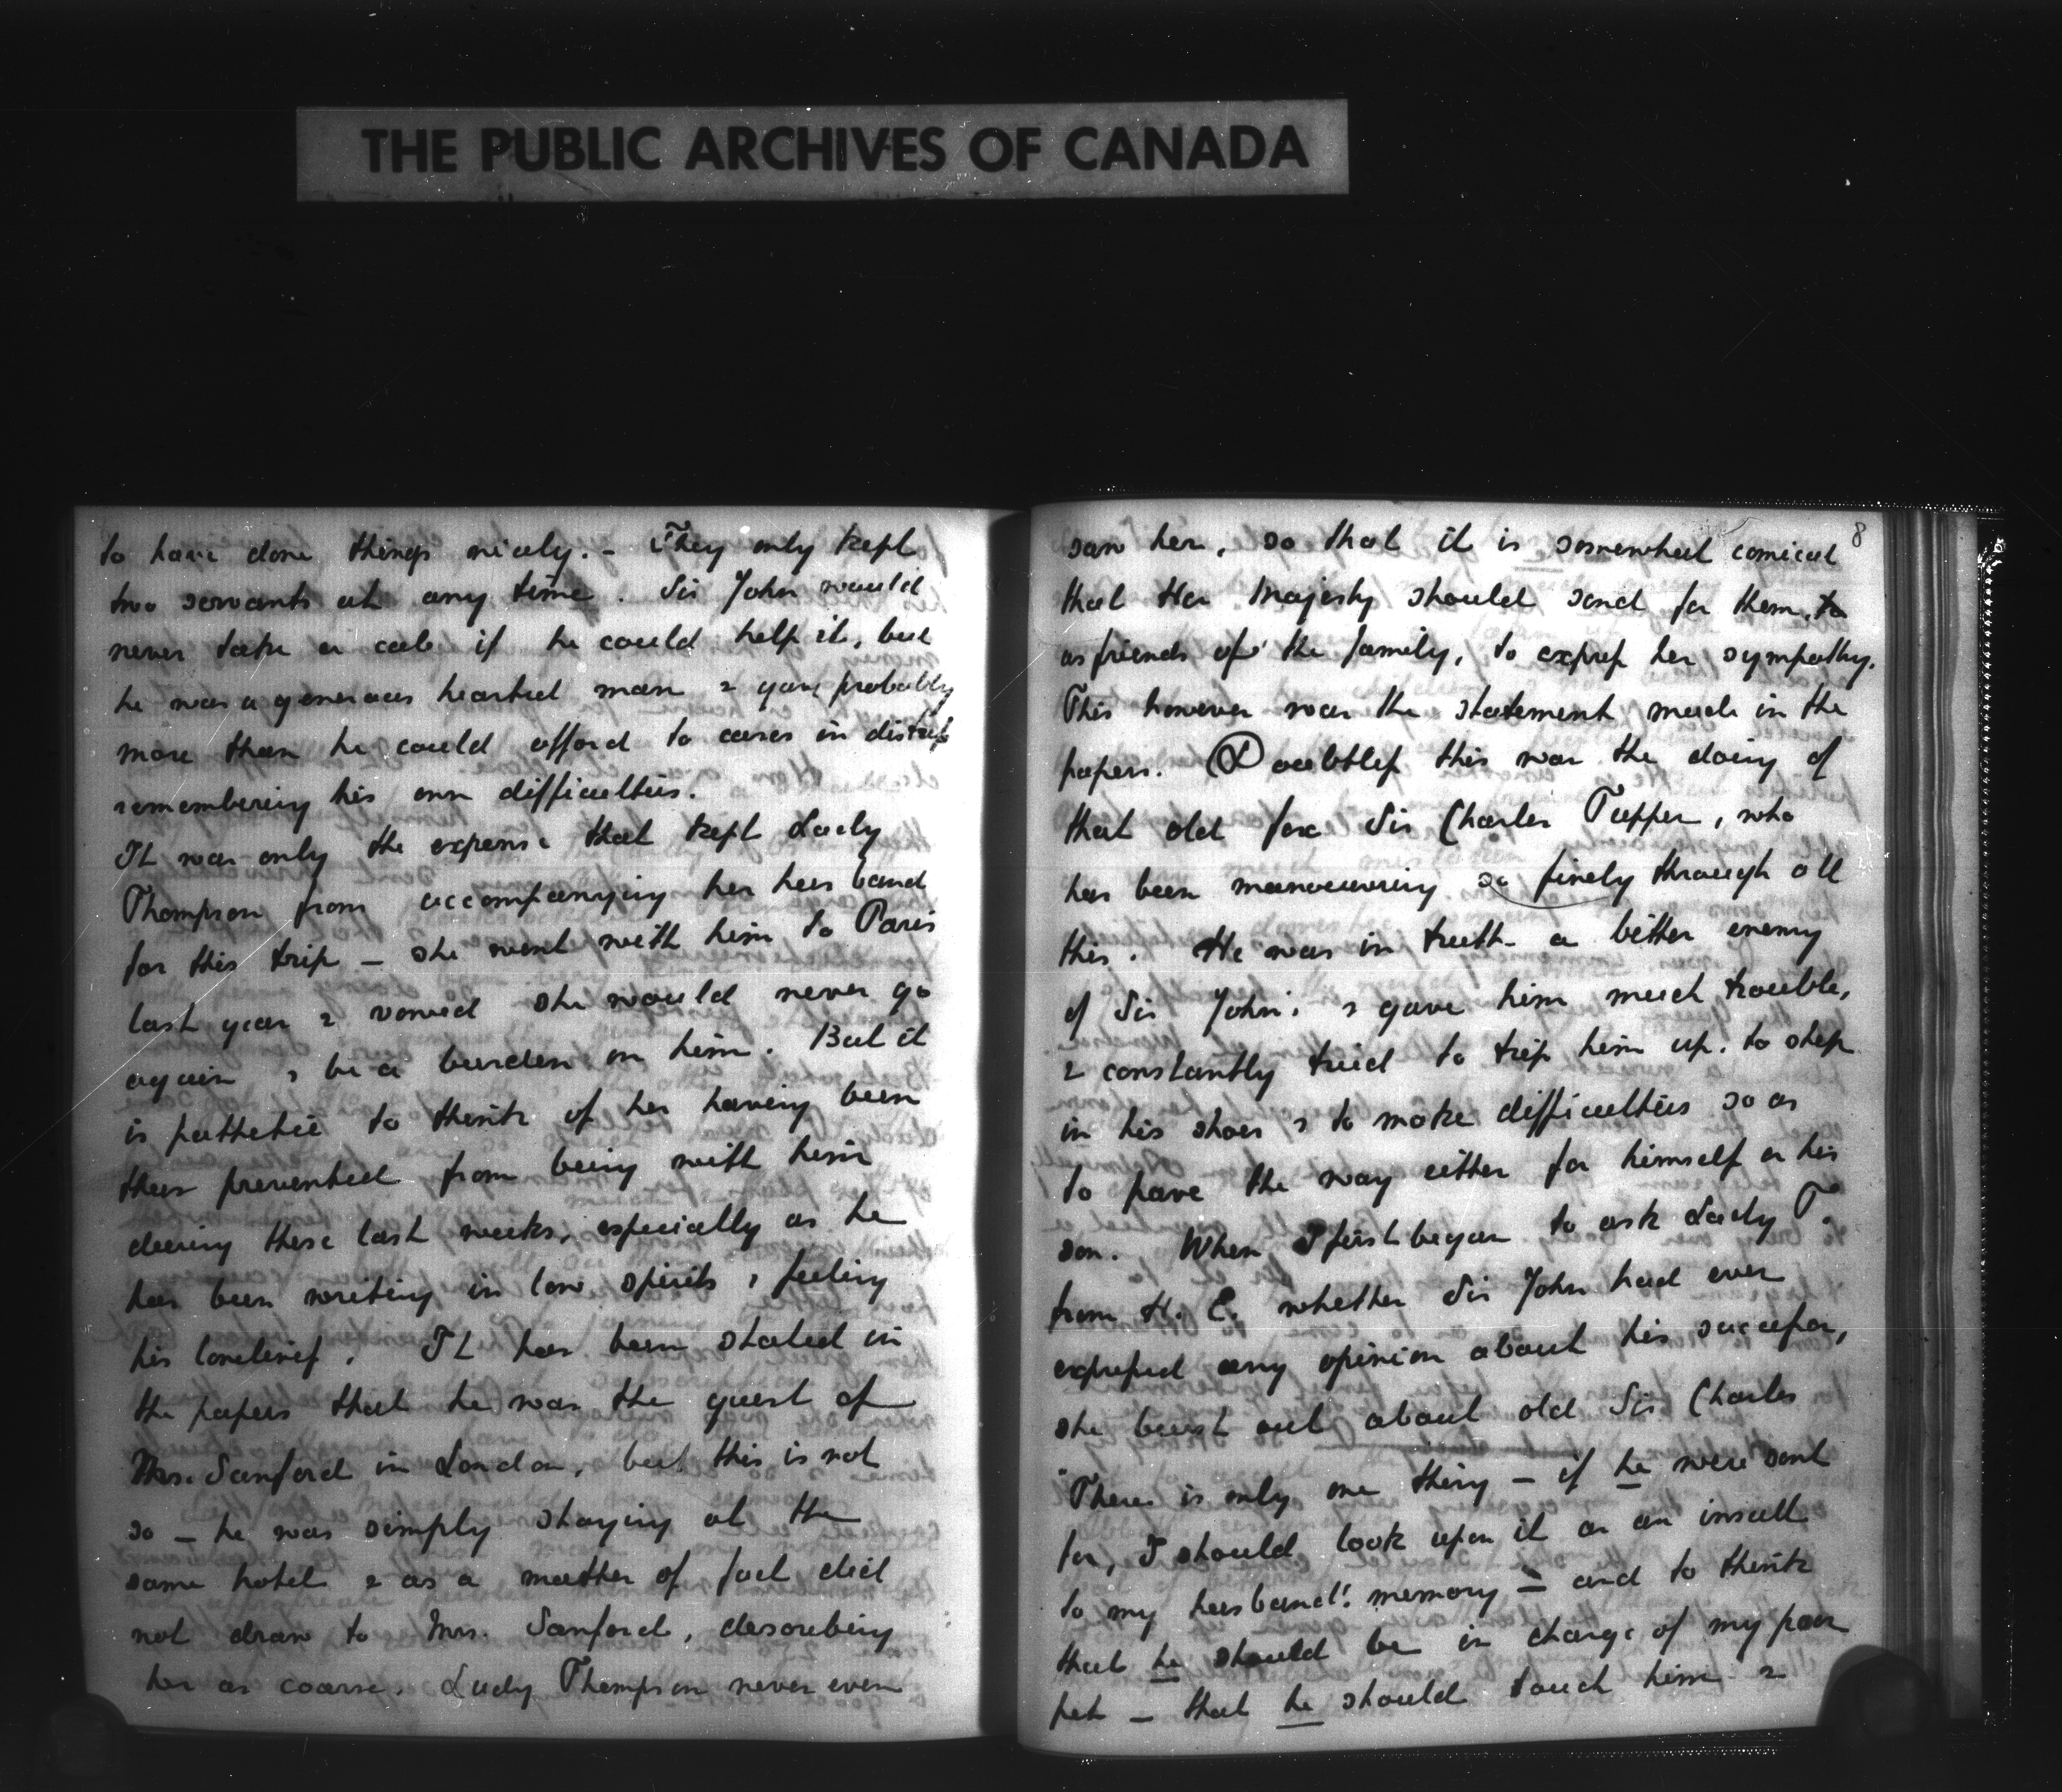 THE PUBLIC ARCHIVES OF CANADA
to have done things nicely. - They only kept
two servants at any time. Sir John would
never take a cab if he could help it, but
he was a generous hearted man & gave probably
more than he could afford to cases in distress
remembering his own difficulties.
It was only the expense that kept Lady
Thompson from accompanying her husband
for this trip - she went with him to Paris
last year & vowed she would never go
again & be a burden on him. But it
is pathetic to think of her having been
thus prevented from being with him
during these last weeks, especially as he
has been writing in low spirits & feeling
his loneliness. It has been stated in
the papers that he was the guest of
Mrs. Sanford in London, but this is not
so - he was simply staying at the
same hotel & as a matter of fact did
not draw to Mrs. Sanford, describing
her as coarse. Lady Thompson never even
8
saw her, so that it is somewhat comical
that Her Majesty should send for them, to
as friends of the family, to express her sympathy.
This however was the statement made in the
papers. Doubtless this was the doing of
that old fox Sir Charles Tupper, who
has been manoeuvering so finely through all
this. He was in truth a bitter enemy
of Sir John's & gave him much trouble,
& constantly tried to trip him up, to step
in his shoes & to make difficulties so as
to pave the way either for himself or his
son. When I first began to ask Lady T.
from H. E. whether Sir John had ever
expressed any opinion about his successor,
she burst out about old Sir Charles
"There is only one thing - if he were sent
for, I should look upon it as an insult
to my husband's memory - and to think
that he should be in charge of my poor
pet - that he should touch him &